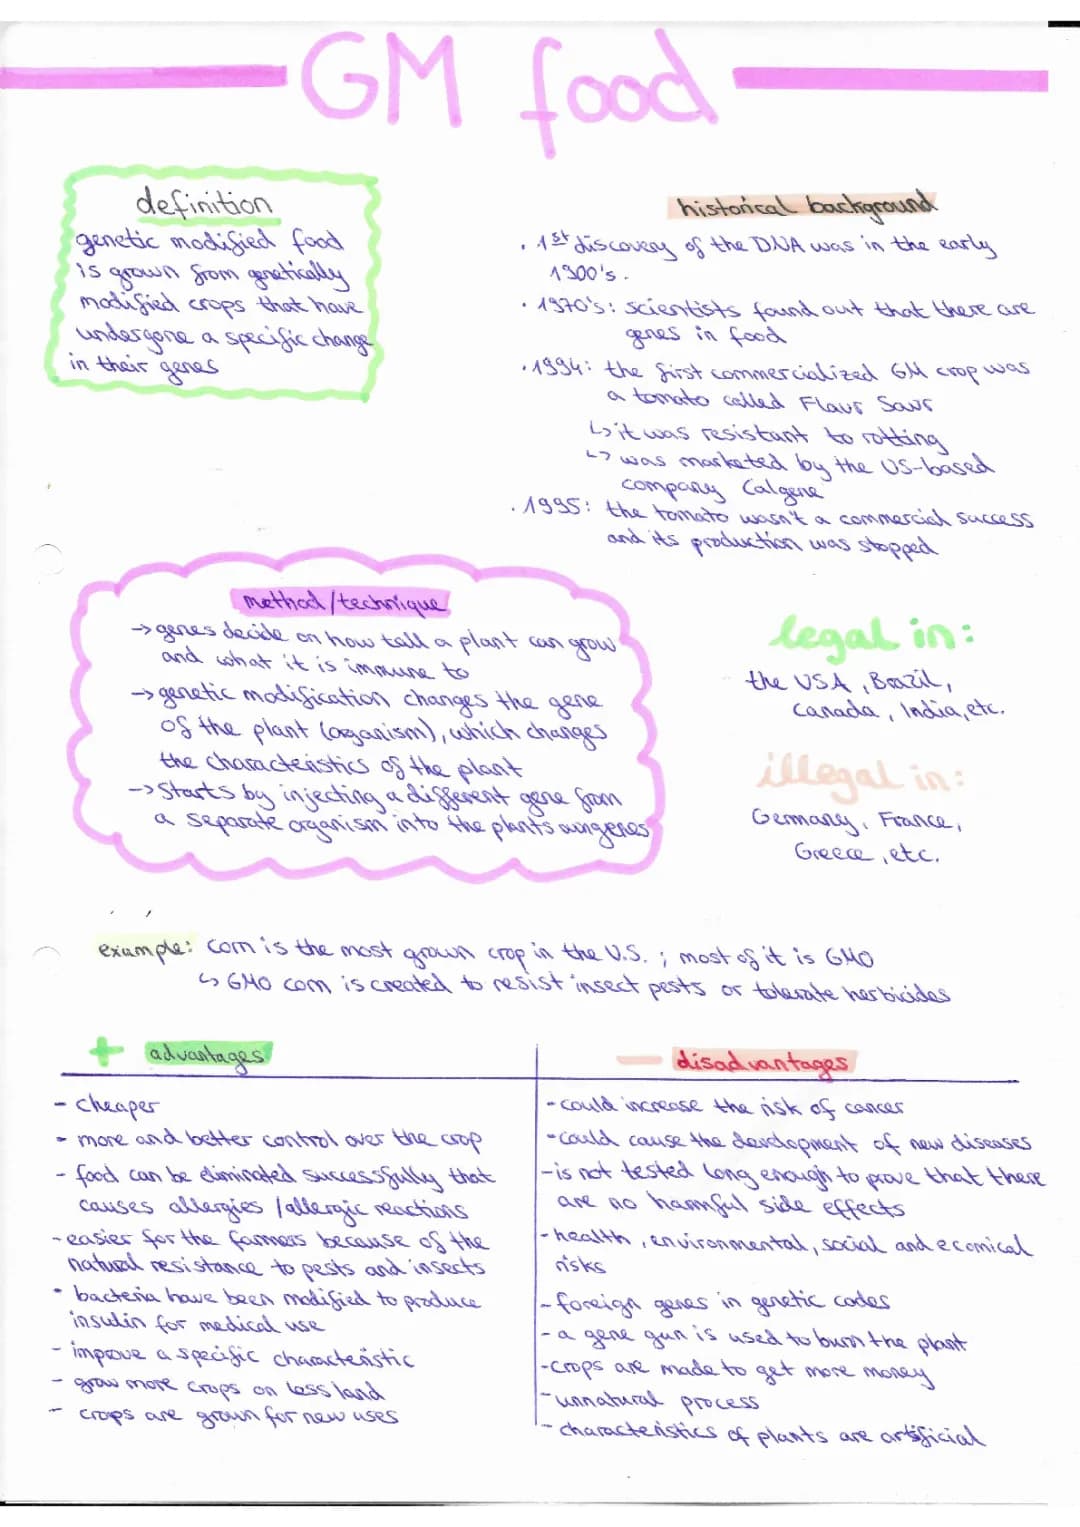 GM food
definition
genetic modified food
is grown from genetically
modified crops that have
undergone a specific change
in their genes
historical background
· 1st discovery of the DNA was in the early
1900's.
· 1970's: scientists found out that there are
genes in food
· 1994: the first commercialized GM crop was
a tomato called Flavr Savr
↳ it was resistant to rotting
↳ was marketed by the US-based
company Calgene
· 1995: the tomato wasn't a commercial success
and its production was stopped
method/technique
→ genes decide on how tall a plant can grow
and what it is immune to
→ genetic modification changes the gene
of the plant (organism), which changes
the characteristics of the plant
→ starts by injecting a different gene from
a separate organism into the plants
legal in:
the USA, Brazil,
Canada, India, etc.
illegal in:
Germany, France,
Greece, etc.
example: corn is the most grown crop in the U.S. ; most of it is GMO
↳ GMO corn is created to resist insect pests or tolerate herbicides
+ advantages
- cheaper
- more and better control over the crop
- food can be eliminated successfully that
causes allergies / allergic reactions
- easier for the farmers because of the
natural resistance to pests and insects
· bacteria have been modified to produce
insulin for medical use
- improve a specific characteristic
- grow more crops on less land
- crops are grown for new uses
- disadvantages
- could increase the risk of cancer
- could cause the development of new diseases
- is not tested long enough to prove that there
are no harmful side effects
- health, environmental, social and ecomical
risks
- foreign genes in genetic codes
- a gene gun is used to burn the plant
- crops are made to get more money
- unnatural process
- characteristics of plants are artificial